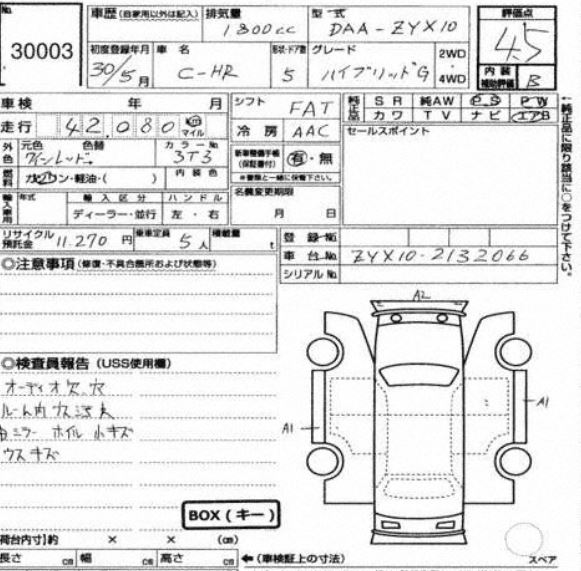 No. 車歴 (自家用以外は記入) 排気量 1800cc 型式 DAA-ZYX10 評価点 4.5
30003 初度登録年月 30/5月 車名 C-HR 形状・ドア数 5 グレード ハイブリッドG 2WD 4WD 内装補助評価 B
車検 年 月 シフト FAT 純正品 SR 純AW PS PW
カワ TV ナビ エアB
走行 42,080 km マイル 冷房 AAC セールスポイント
外色 元色 ワインレッド 色替 カラーNo. 3T3 新車整備手帳 (保証書付) 有・無
※書類と一緒に保管下さい。
燃料 ガソリン・軽油・( ) 内装色 名義変更期限
月 日
輸入車用 年式 輸入区分 ディーラー・並行 ハンドル 左・右
←純正品に限り該当に○をつけて下さい。
リサイクル預託金 11,270 円 乗車定員 5人 積載量 t 登録No.
車台No. ZYX10-2132066
シリアルNo.
◎注意事項 (修復・不具合箇所および状態等)
A2
◎検査員報告 (USS使用欄)
オーディオ欠、穴
ルーム内
ミラー ホイル 小キズ
ウスキズ
A1
A1
BOX (キー)
荷台内寸)約 × × (cm)
長さ cm 幅 cm 高さ cm ←(車検証上の寸法)
スペア